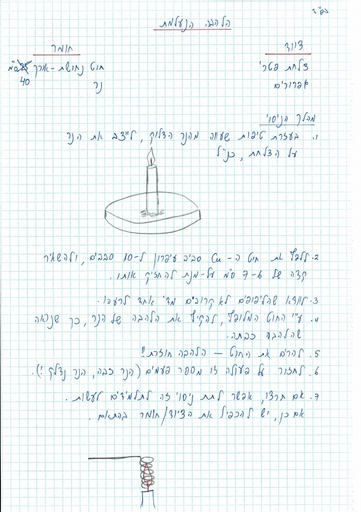 בס"ד
הלהבה הנעלמת
ציוד
חומר
צלחת פטרי
חוט נחושת - אורך 40 ס"מ
אפרורים
נר
מהלך הניסוי
1. בעזרת טיפות שעווה מהנר הדלוק, לייצב את הנר
על הצלחת, כנ"ל
2. ללפף את חוט ה- Cu סביב עיפרון ל-10 סבבים, ולהשאיר
קצה של 6-7 ס"מ על-מנת להחזיק אותו.
3. לוודא שהליפופים לא קרובים מדי אחד לרעהו.
4. ע"י החוט המלופף, להקיף את הלהבה של הנר, כך שנראה
שהלהבה כבתה.
5. להרים את החוט - הלהבה חוזרת!!
6. לחזור על פעולה זו מספר פעמים (הנר כבה, הנר נדלק!).
7. אם תרצו, אפשר לתת ניסוי זה לתלמידים לעשות.
אם כן, יש להכפיל את הציוד/חומר בהתאם.